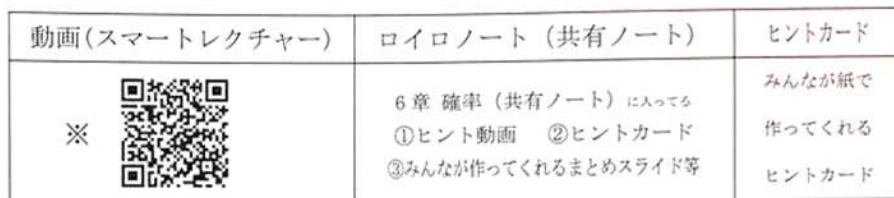 動画(スマートレクチャー)
ロイロノート（共有ノート）
ヒントカード
※
6章 確率（共有ノート）に入ってる
①ヒント動画 ②ヒントカード
③みんなが作ってくれるまとめスライド等
みんなが紙で
作ってくれる
ヒントカード